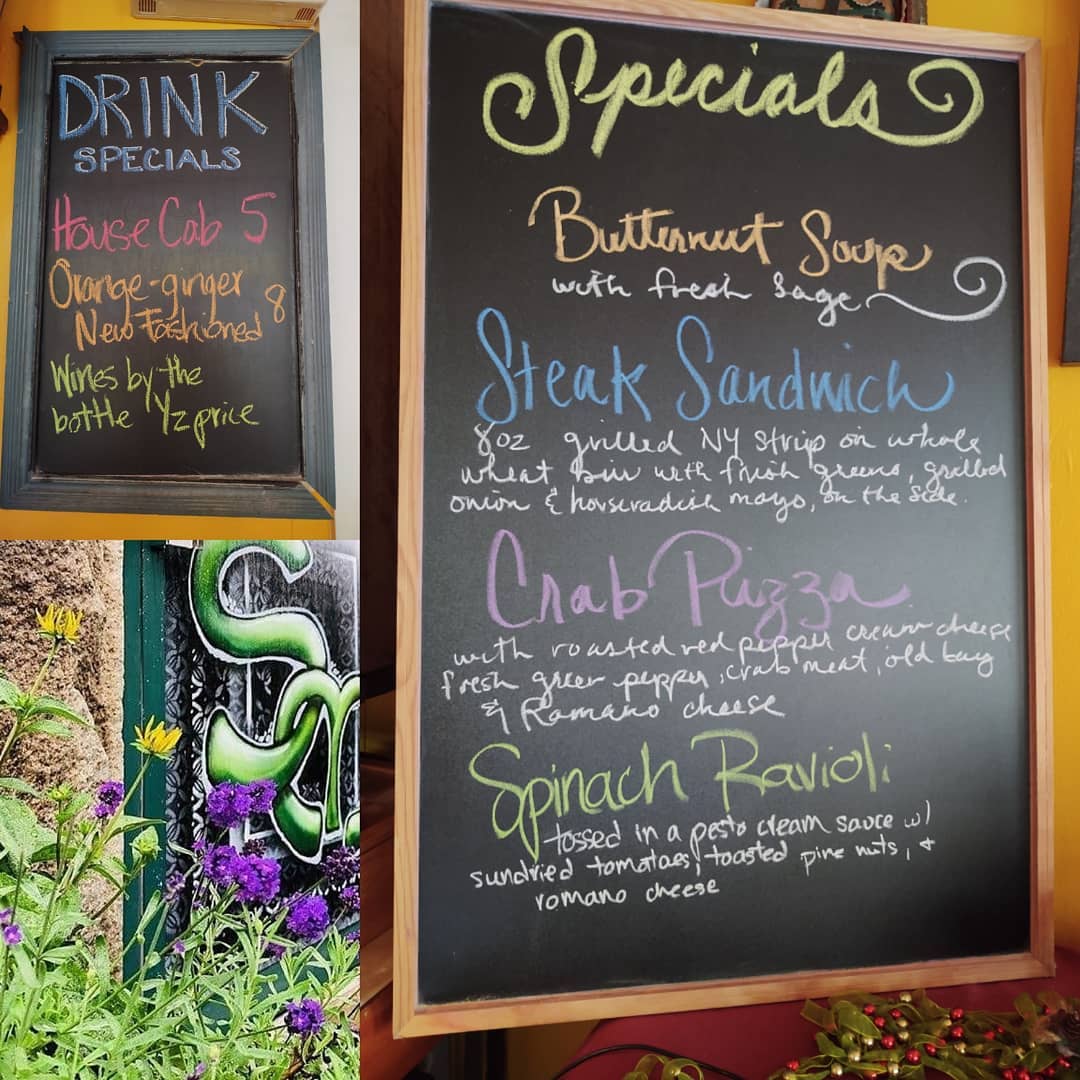 DRINK
SPECIALS
House Cab 5
Orange-ginger 8
New Fashioned
Wines by the
bottle 1/2 price
Specials
Butternut Soup
with fresh sage
Steak Sandwich
8oz grilled NY strip on whole
wheat bun with fresh greens, grilled
onion & horseradish mayo, on the side.
Crab Pizza
with roasted red pepper cream cheese
fresh green pepper, crab meat, old bay
& Romano cheese
Spinach Ravioli
tossed in a pesto cream sauce w/
sundried tomatoes, toasted pine nuts, +
romano cheese